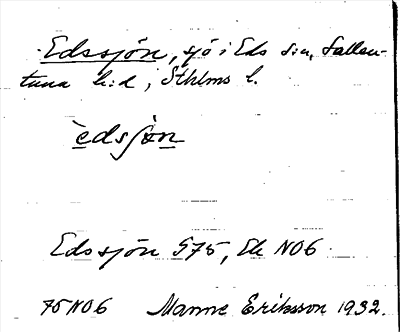 Edssjön, sjö i Eds sn, Sollen-
tuna h:d, Sthlms l.
èdsʃö̀n
Edssjön S75, Ek NO6
75 NO6 Manne Eriksson 1932.